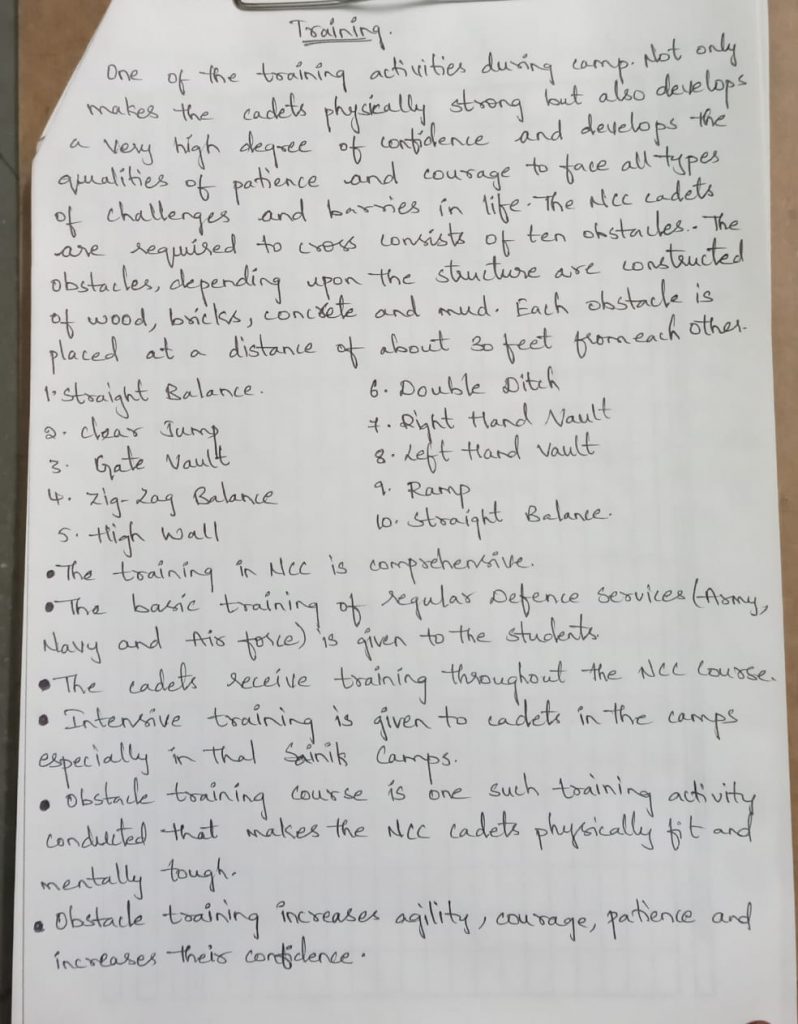 Training.
One of the training activities during camp. Not only
makes the cadets physically strong but also develops
a very high degree of confidence and develops the
qualities of patience and courage to face all types
of challenges and barries in life. The NCC cadets
are required to cross consists of ten obstacles.. The
obstacles, depending upon the structure are constructed
of wood, bricks, concrete and mud. Each obstacle is
placed at a distance of about 30 feet from each other.
1. Straight Balance.
2. Clear Jump
3. Gate Vault
4. Zig-Zag Balance
5. High Wall
6. Double Ditch
7. Right Hand Vault
8. Left Hand Vault
9. Ramp
10. Straight Balance.
• The training in NCC is comprehensive.
• The basic training of regular Defence Services (Army,
Navy and Air force) is given to the students.
• The cadets receive training throughout the NCC Course.
• Intensive training is given to cadets in the camps
especially in Thal Sainik Camps.
• Obstacle training course is one such training activity
conducted that makes the NCC cadets physically fit and
mentally tough.
• Obstacle training increases agility, courage, patience and
increases their confidence.